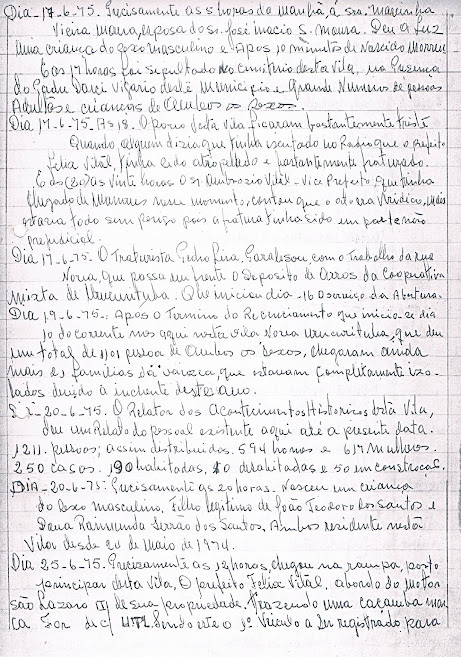 Dia-17-6-75. Precisamente as 5 horas da manhã, á sra. Marcinha
Vieira Maura, esposa do sr. José inacio S. Moura. Deu a Luz
uma criança do sexo masculino e Após 10 minuto de Nascido Morreu
E as 17 horas foi sepultado no Cemiterio desta Vila, na Presença
do Vigario deste Municipio e Grande Numero de pessoas
Adultos e crianças de Ambos os Sexos.
Dia 17-6-75. As 18. O Povo desta Vila ficaram bastantemente triste
Quando alguem dizia que tinha escutado no Radio que o prefeito
Felix Vital, tinha sido atropellado e bastantemente fraturado.
E as (20) as Vinte horas O sr Ambrozio Vital - Vice Prefeito, que tinha
chegado de Manaus nesse momento, contou que o ato era Viridico, mais
estaria fodo sem perigo pois a fratura tinha sido em parte não
prejudicial.
Dia 17-6-75. O Tratorista Pedro Lira, com o Trabalho da rua
Nova, que passa em frente o Deposito de Arros da Cooperativa
mixta de Urucurituba. Que iniciou dia -16 O serviço da Abertura.
Dia 19-6-75. Apos o Termino do Recenciamento que inicio-se dia
10 do corrente mes aqui nesta Vila Nova Urucurituba, que deu
um total de 1.101 pessoa de Ambos os Sexos, chegaram ainda
mais 21 familias da varzea, que estavam Completamente izo-
lados devido á enchente deste ano.
Dia -20-6-75. O Relator dos Acontecimentos Historicos desta Vila,
deu um Relato do pessoal existente aqui até a presente data.
1211. pessoas; assim destribuidas. 594 homes e 617 mulheres.
250 casas. 190 habitadas, 10 desabitadas e 50 em construção.
Dia -20-6-75. Precisamente as 20 horas. Nasceu um criança
do sexo masculino, Filho legitimo de João Teodoro dos Santos e
Dona Raimunda Serrão dos Santos, Ambos residente nesta
Vila desde 20 de Maio de 1974.
Dia 25-6-75. Precizamente as 12 horas, chegou na rampa, porto
principar desta Vila, O prefeito Felix Vital, abordo do Motor
são Lazaro II de sua propriedade. Trazendo uma caçamba mar
ca For sendo este o 1º Veiculo a ser registrado para